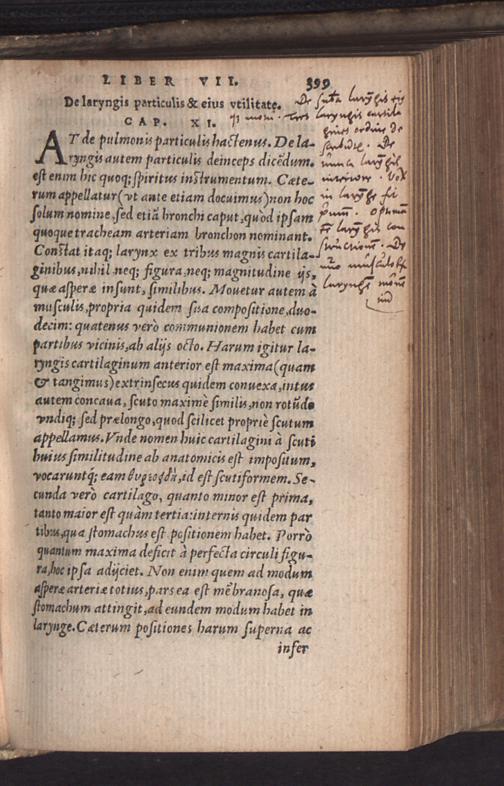 LIBER VII. 399
De laryngis particulis & eius vtilitate.
CAP. XI.
AT de pulmonis particulis hactenus. De la-
ryngis autem particulis deinceps dicẽdum.
est enim hic quoq; spiritus instrumentum. Cæte-
rum appellatur (vt ante etiam docuimus) non hoc
solum nomine, sed etiã bronchi caput, quòd ipsam
quoque tracheam arteriam bronchon nominant.
Constat itaq; larynx ex tribus magnis cartila-
ginibus, nihil neq; figura, neq; magnitudine ijs,
quæ asperæ insunt, similibus. Mouetur autem à
musculis, propria quidem sua compositione, duo-
decim: quatenus verò communionem habet cum
partibus vicinis, ab alijs octo. Harum igitur la-
ryngis cartilaginum anterior est maxima (quam
& tangimus) extrinsecus quidem conuexa, intus
autem concaua, scuto maximè similis, non rotũdo
vndiq; sed prælongo, quod scilicet propriè scutum
appellamus. Vnde nomen huic cartilagini à scuti
huius similitudine ab anatomicis est impositum,
vocaruntq́; eam θυρεοειδῆ, id est scutiformem. Se-
cunda verò cartilago, quanto minor est prima,
tanto maior est quàm tertia: internis quidem par
tibus, qua stomachus est positionem habet. Porrò
quantum maxima deficit à perfecta circuli figu-
ra, hoc ipsa adijciet. Non enim quem ad modum
asperæ arteriæ totius, pars ea est mẽbranosa, quæ
stomachum attingit, ad eundem modum habet in
larynge. Cæterum positiones harum superna ac
infer